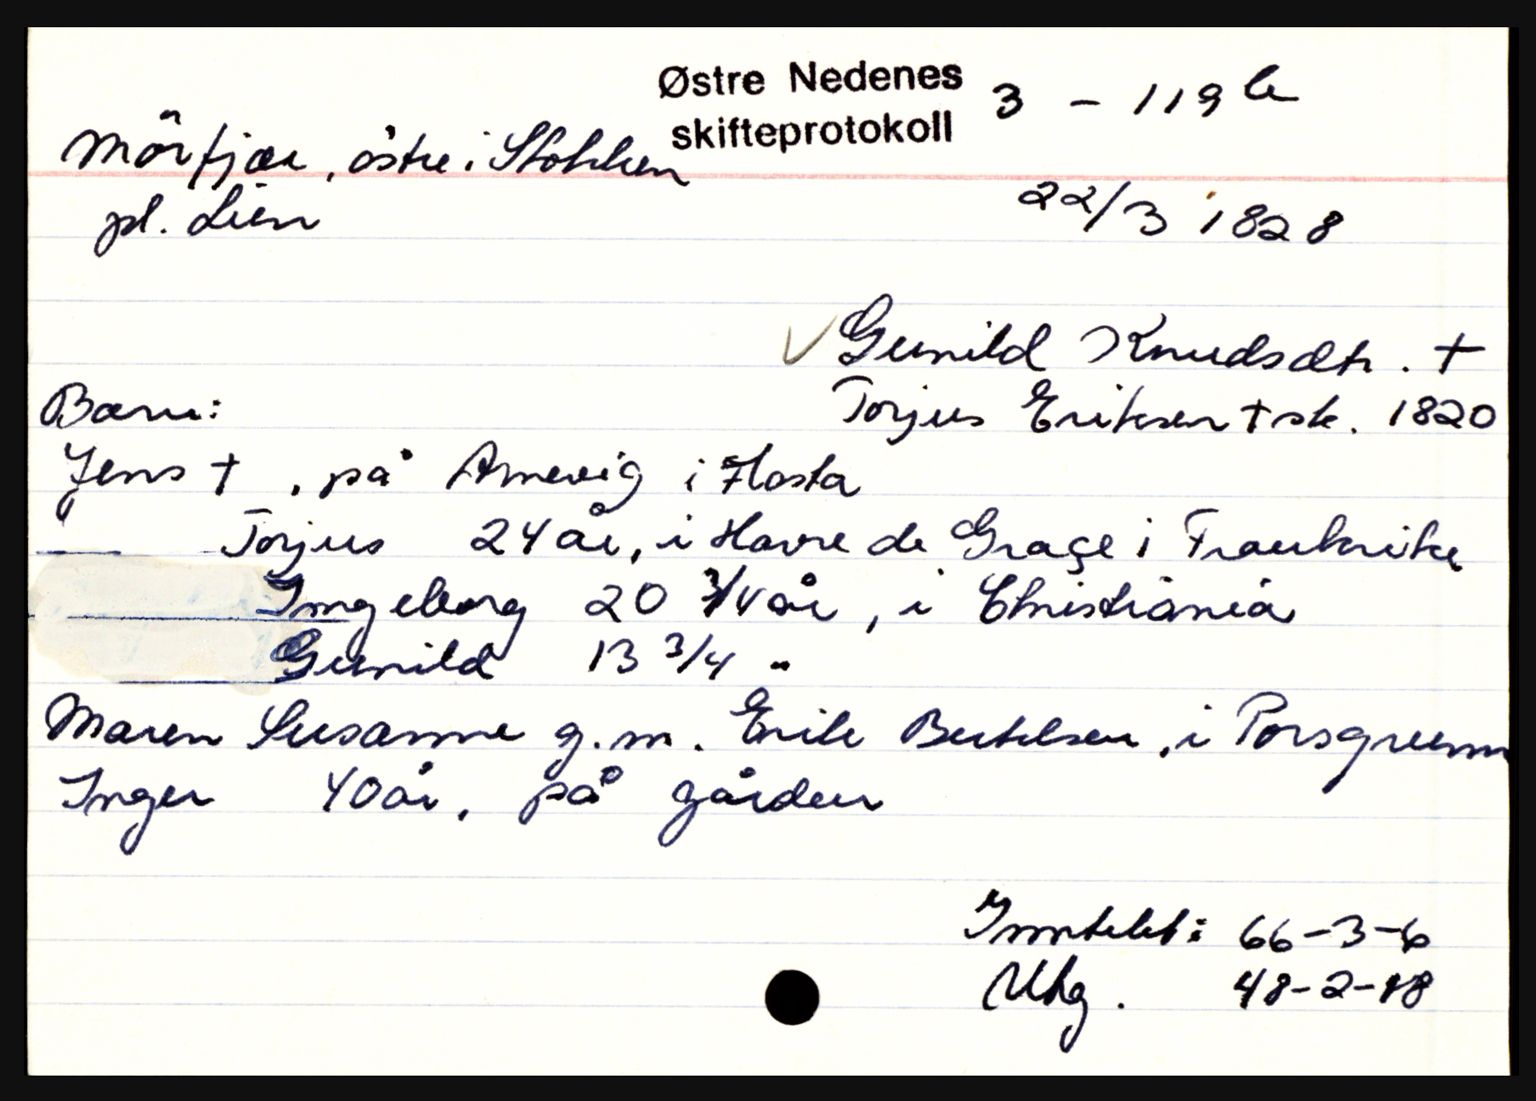 Østre Nedenes
skifteprotokoll
3 - 119 b
Mörfjær, östre i Stokken
pl. Lien
22/3 1828
✓ Gunild Knudsdtr. †
Torjus Eriksen † sk. 1820
Barn:
Jens †, på Arnevig i Flosta
Torjus 24 år, i Havre de Graçe i Frankrike
Ingeborg 20 3/4 år, i Christiania
Gunild 13 3/4 "
Maren Susanne g.m. Erik Bertelsen, i Porsgrunn
Inger 40 år, på gården
Inntekt: 66-3-6
Utg. 48-2-18